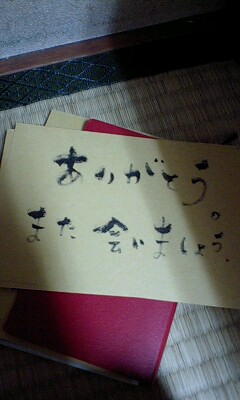 ありがとう。
また会いましょう。